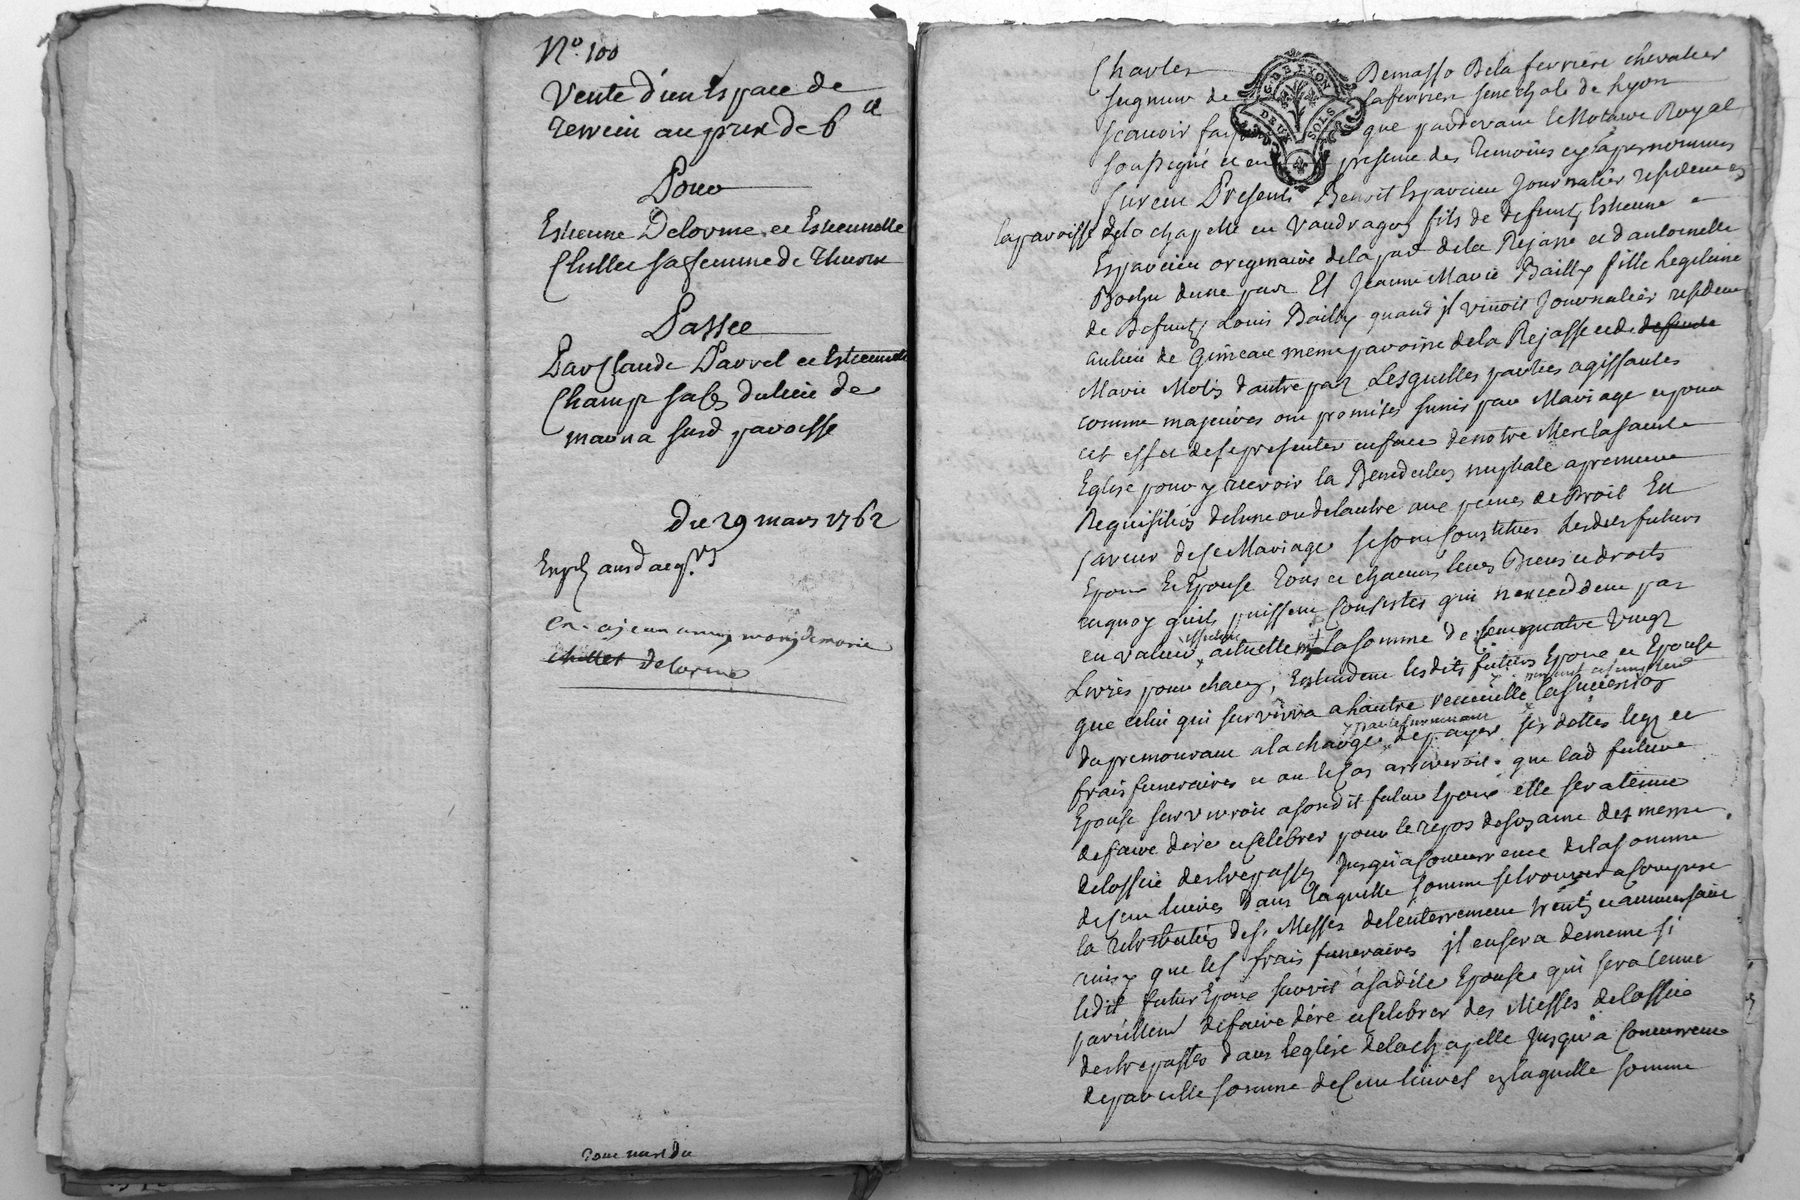 N.º 100
Vente d'un Espace de
terrein au prix de 6 ᵗᵗ
Pour
Estienne Delorme et Estiennette
Chillet sa femme de Thurin
Passée
Par Claude Parrel et Estiennette
Champ sa fe du lieu de
marna susd paroisse
Du 29 mars 1762
Exp
chillet delorme
G. DE LYON
DEUX SOLS
Charles Demasso Dela ferriere chevalier
seigneur de laferriere senechal de Lyon
scavoir fai que pardevant le Notaire Royal
soussigné et en presence des temoins cy apres nommés
furent Presents Benoit Esparcieu Journalier resident en
la paroisse de la chapelle en Vaudragon fils de defunt Estienne
Esparcieu originaire de la par de la Rejasse et d'antoinette
d'une part Et Jeanne Marie Bailly fille legitime
de Defunt Louis Bailly quand il vivoit Journalier resident
au lieu de meme paroisse de la Rejasse et de defunte
Marie d'autre part Lesquelles parties agissantes
comme majeures ont promises s'unir par Mariage et pour
cet effet de se presenter en face de notre Mere la sainte
Eglise pour y recevoir la Benediction nuptiale a premiere
Requisition de l'une ou de l'autre aux peines de Droit En
faveur de ce Mariage se sont constitués lesdits futurs
Epoux et Epouse tous et chacuns leurs Biens et droits
en quoy qu'ils puissent Consister qui n'excedent pas
en valeur actuelle la somme de cent quatre vingt
Livres pour chacun, Entendent lesdits futurs Epoux et Epouse
que celui qui survivra a l'autre recueille la succession
du premourant a la charge de payer ses dettes legs et
frais funeraires et au le cas arriveroit que lad future
Epouse survivroit a sondit futur Epoux elle sera tenue
de faire dire et celebrer pour le repos de son ame des messes
de l'office des trepassés jusqu'a concurrence de la somme
de cent livres dans laquelle somme se trouvera compris
la retribution des Messes de l'enterrement et anniversaire
ainsy que les frais funeraires il en sera de meme si
ledit futur Epoux survit à sadite Epouse qui sera tenu
pareillement de faire dire et celebrer des Messes de l'office
des trepassés dans l'eglise de la chapelle jusqu'a Concurrence
de pareille somme de cent livres en laquelle somme